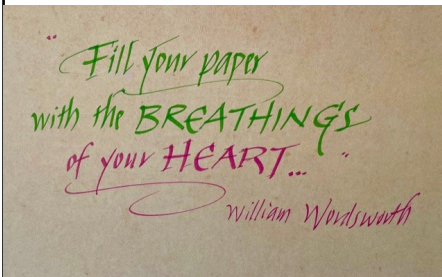 "Fill your paper
with the BREATHINGS
of your HEART..."
William Wordsworth